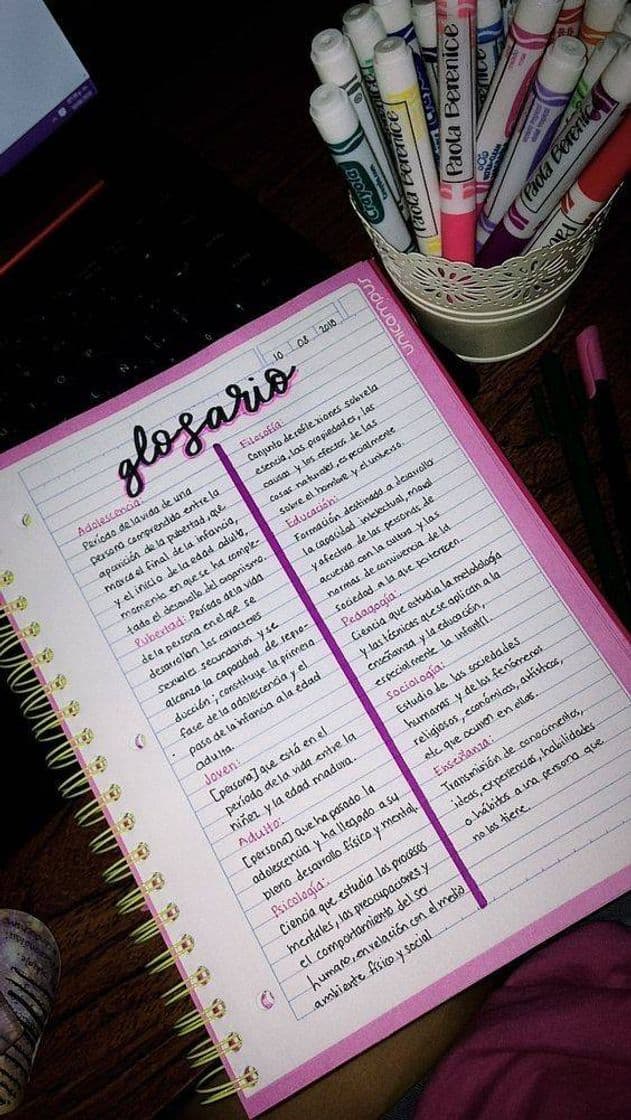 Crayola
Paola Berenice
Paola Berenice
Paola Berenice
unicampus
10 08 2018
glosario
Adolescencia:
Período de la vida de una
persona comprendido entre la
aparición de la pubertad, que
marca el final de la infancia,
y el inicio de la edad adulta,
momento en que se ha comple-
tado el desarrollo del organismo.
Pubertad: Período de la vida
de la persona en el que se
desarrollan los caracteres
sexuales secundarios y se
alcanza la capacidad de repro-
ducción; constituye la primera
fase de la adolescencia y el
paso de la infancia a la edad
adulta.
Joven:
[persona] que está en el
período de la vida entre la
niñez y la edad madura.
Adulto:
[persona] que ha pasado la
adolescencia y ha llegado a su
pleno desarrollo físico y mental.
Psicología:
Ciencia que estudia los procesos
mentales, las preocupaciones y
el comportamiento del ser
humano, en relación con el medio
ambiente físico y social
Filosofía:
Conjunto de reflexiones sobre la
esencia, las propiedades, las
causas y los efectos de las
cosas naturales, especialmente
sobre el hombre y el universo.
Educación:
Formación destinada a desarrollar
la capacidad intelectual, moral
y afectiva de las personas de
acuerdo con la cultura y las
normas de convivencia de la
sociedad a la que pertenecen.
Pedagogía:
Ciencia que estudia la metodología
y las técnicas que se aplican a la
enseñanza y la educación,
especialmente la infantil.
Sociología:
Estudio de las sociedades
humanas y de los fenómenos
religiosos, económicos, artísticos,
etc que ocurren en ellas.
Enseñanza:
Transmisión de conocimientos,
ideas, experiencias, habilidades
o hábitos a una persona que
no los tiene.